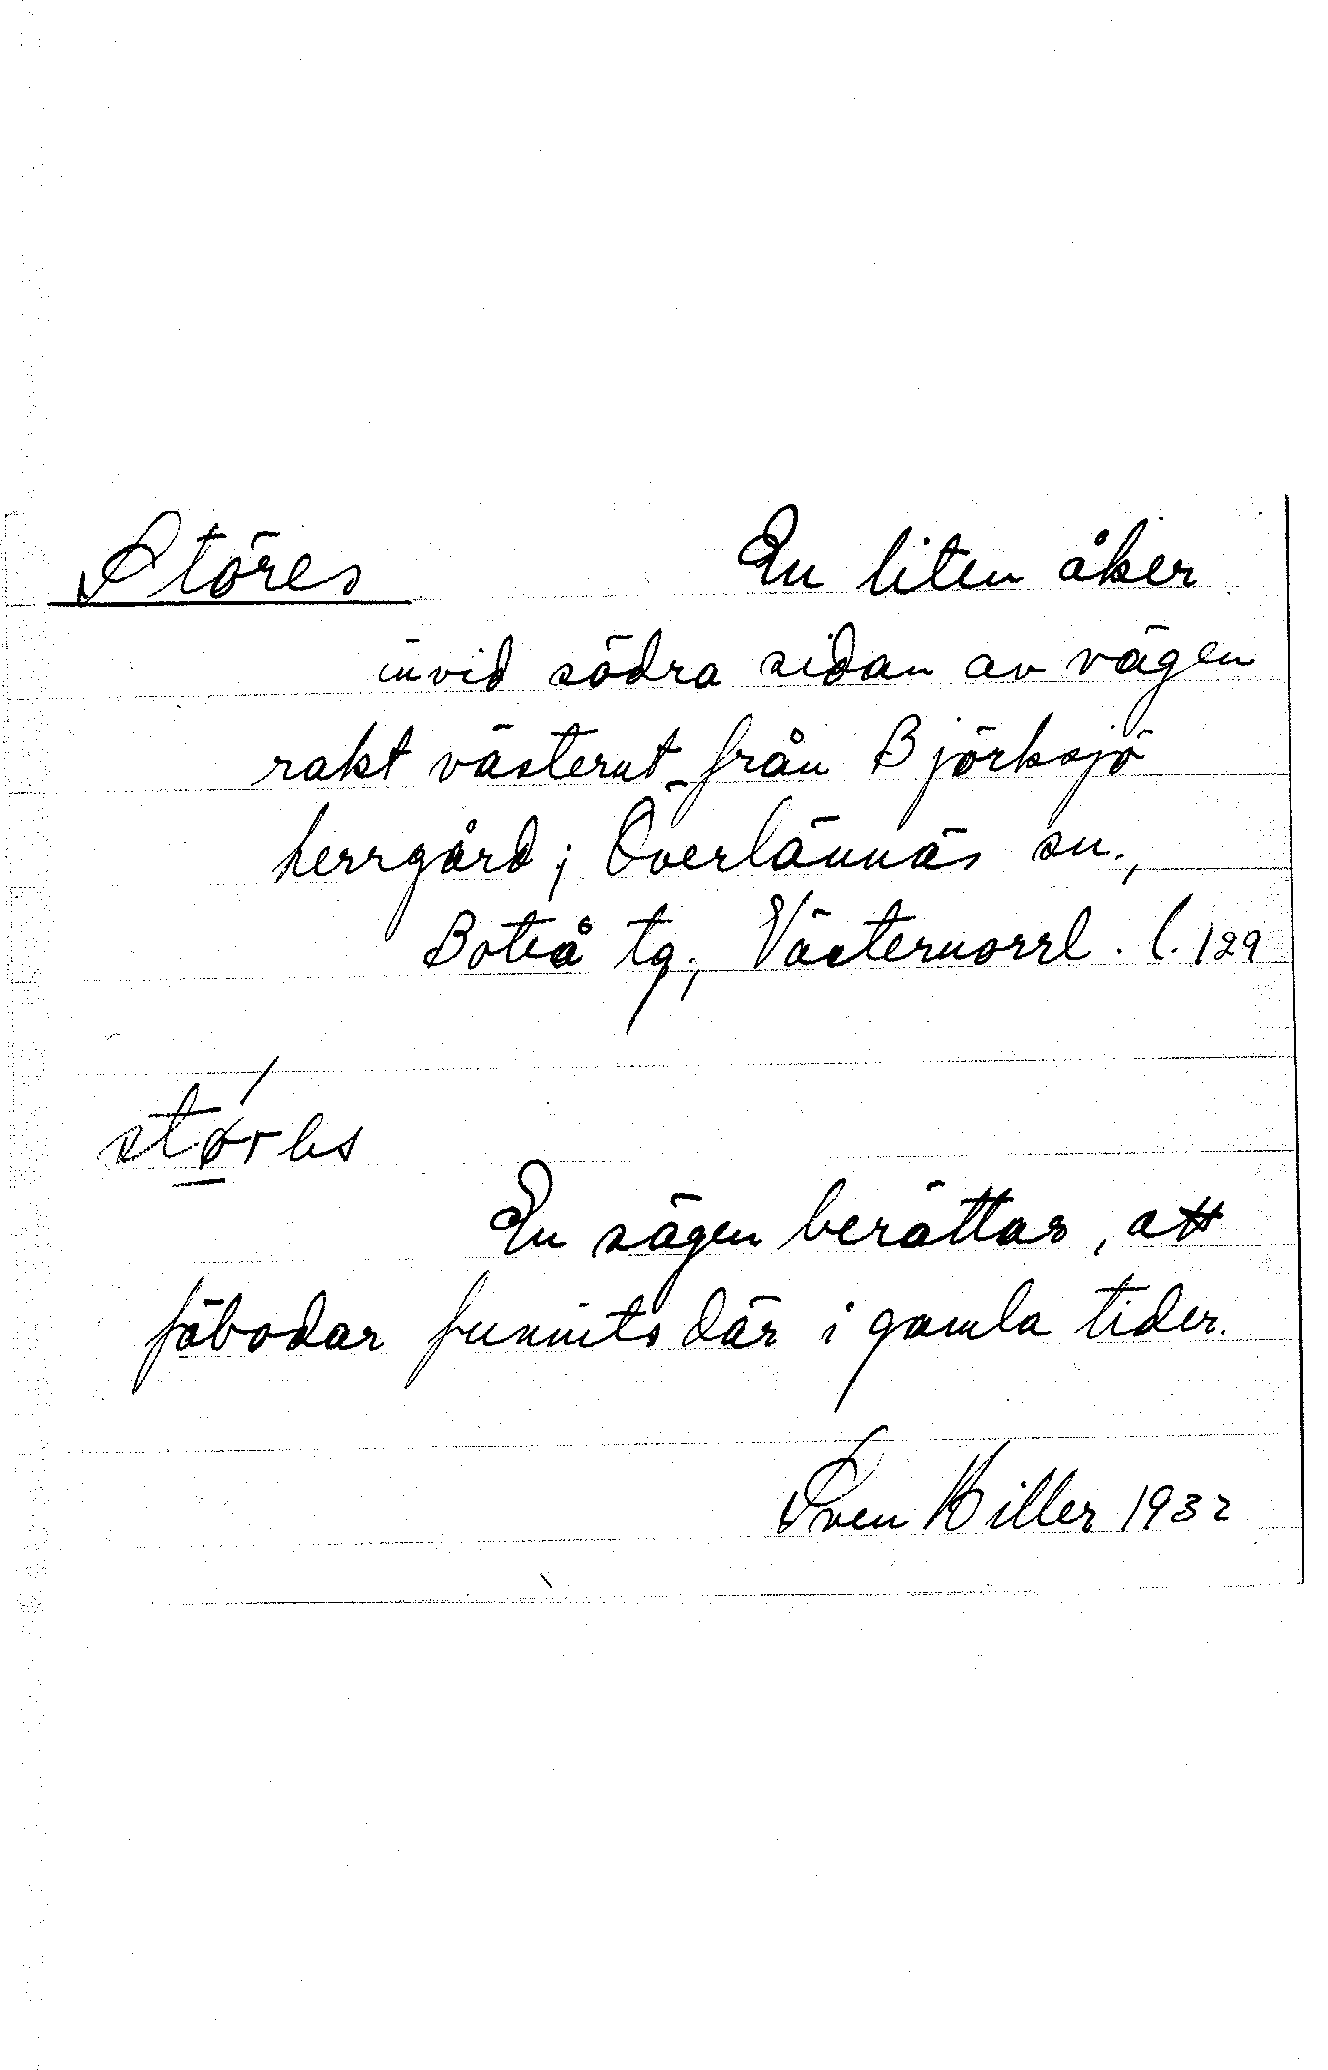 Störes En liten åker
invid södra sidan av vägen
rakt västerut från Björksjö
herrgård; Överlännäs sn.,
Boteå tg; Västernorrl. l. 129
En sägen berättas, att
fäbodar funnits där i gamla tider.
Sven Hiller 1932